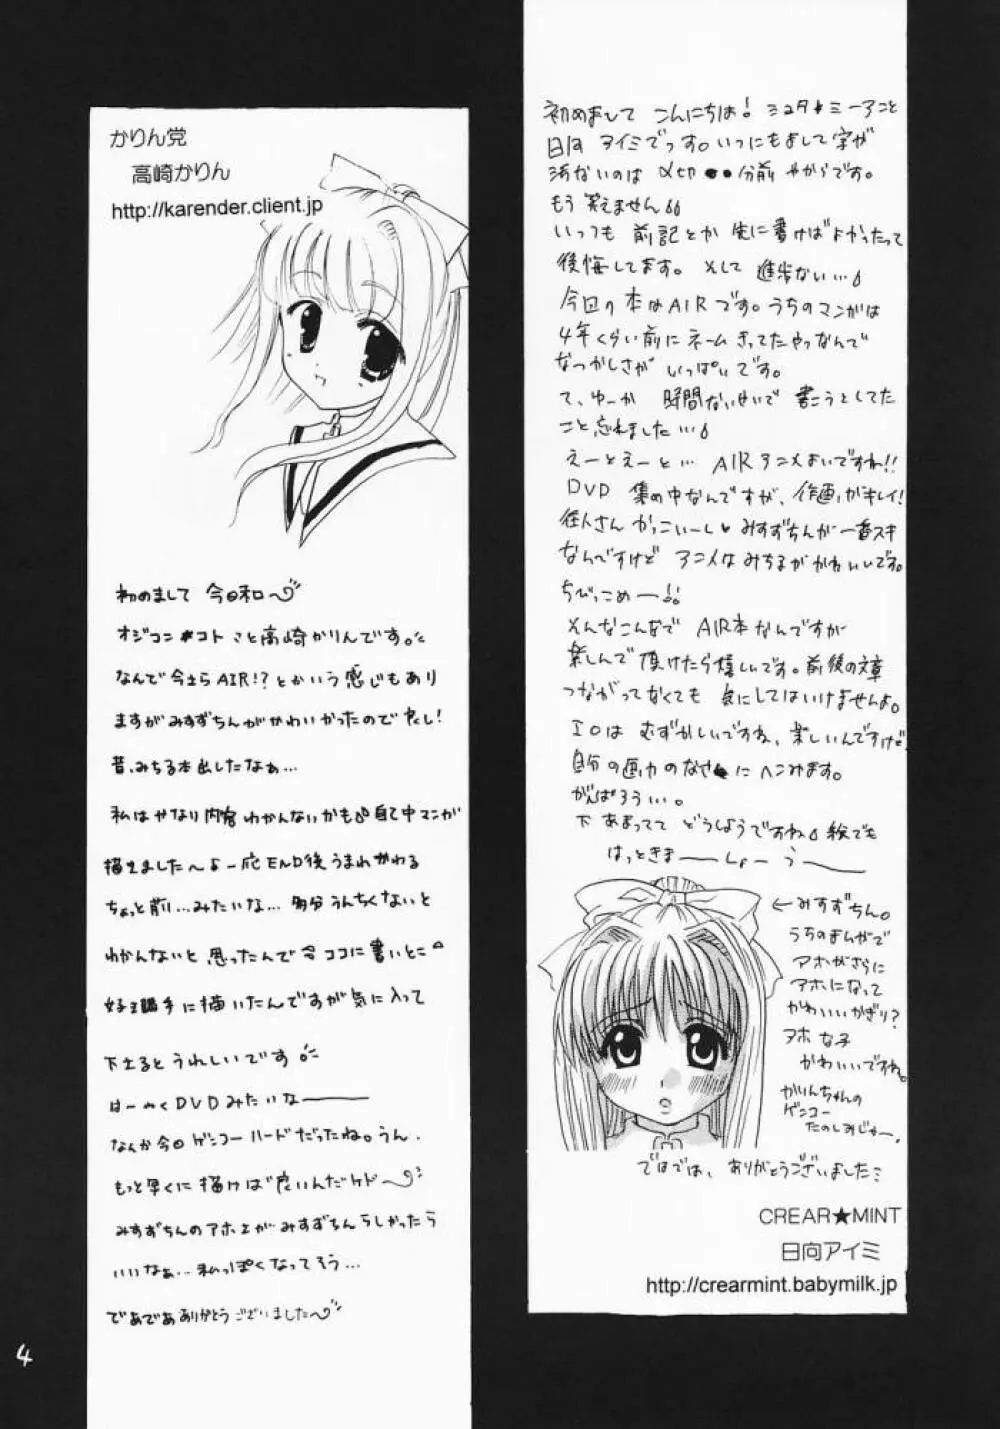 かりん党
高崎かりん
http://karender.client.jp
初めまして 今日和
オジコン コト こと高崎かりんです。
なんで今さらAIR!?とかいう感じもあり
ますがみすずちんがかわいかったので良し!
昔、みちる本出したなぁ…
私はかなり内容わかんないかも 自己中マンガ
描きました〜よ 一応END後うまれかわる
ちょっと前…みたいな…多分うんちくないと
わかんないと思ったんで今ココに書いとこ
好き勝手に描いたんですが気に入って
下さるとうれしいです。
はーやくDVDみたいなー
なんか今回ゲンコーハードだったね。うん。
もっと早くに描けば良いんだケドー
みすずちんのアホ上がみすずちんらしかったら
いいなぁ…私っぽくなってそう…
であであありがとうございました〜
4
初めまして こんにちは! ミュタ★ミーアこと
日向アイミでっす。いつにもまして字が
汚ないのは〆切●●分前やからです。
もう笑えません
いっつも 前記とか先に書けばよかったって
後悔してます。そして進歩ない…
今回の本はAIRです。うちのマンガは
4年くらい前にネームきってたやつなんで
なつかしさが いっぱいです。
て、ゆーか 時間ないせいで 書こうとしてた
こと忘れました…
えーとえーと… AIRアニメよいですね!!
DVD 集め中なんですが、作画がキレイ!
往人さん かっこいーし♥ みすずちんが一番スキ
なんですけど アニメはみちるがかわいいです。
ちびっこめー
そんなこんなで AIR本なんですが
楽しんで頂けたら嬉しいです。前後の文章
つながってなくても 気にしてはいけませんよ。
エロは むずかしいですね、楽しいんですけど
自分の画力のなさにへこみます。
がんばろうぃ。
下 あまってて どうしようですね 絵でも
はっときまーしょーうー
←みすずちん。
うちのまんがで
アホがさらに
アホになって
かわいいかぎり?
アホな子
かわいいですね。
かりんちゃんの
ゲンコー
たのしみじゃー。
ではでは、ありがとうございました
CREAR★MINT
日向アイミ
http://crearmint.babymilk.jp